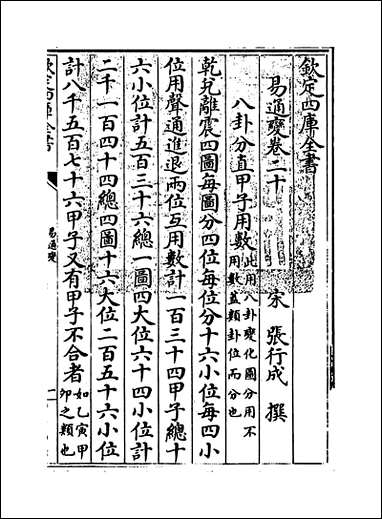 欽定四庫全書
易通變卷二十
宋 張行成 撰
八卦分直甲子用數此用八卦變化圖分用不用數蓋類卦位而分也
乾兌離震四圖每圖分四位每位分十六小位每四小
位用聲通進退兩位互用數計一百三十四甲子總十
六小位計五百三十六總一圖四大位六十四小位計
二千一百四十四總四圖十六大位二百五十六小位
計八千五百七十六甲子又有甲子不合者如乙寅甲卯之類也
欽定四庫全書
易通變